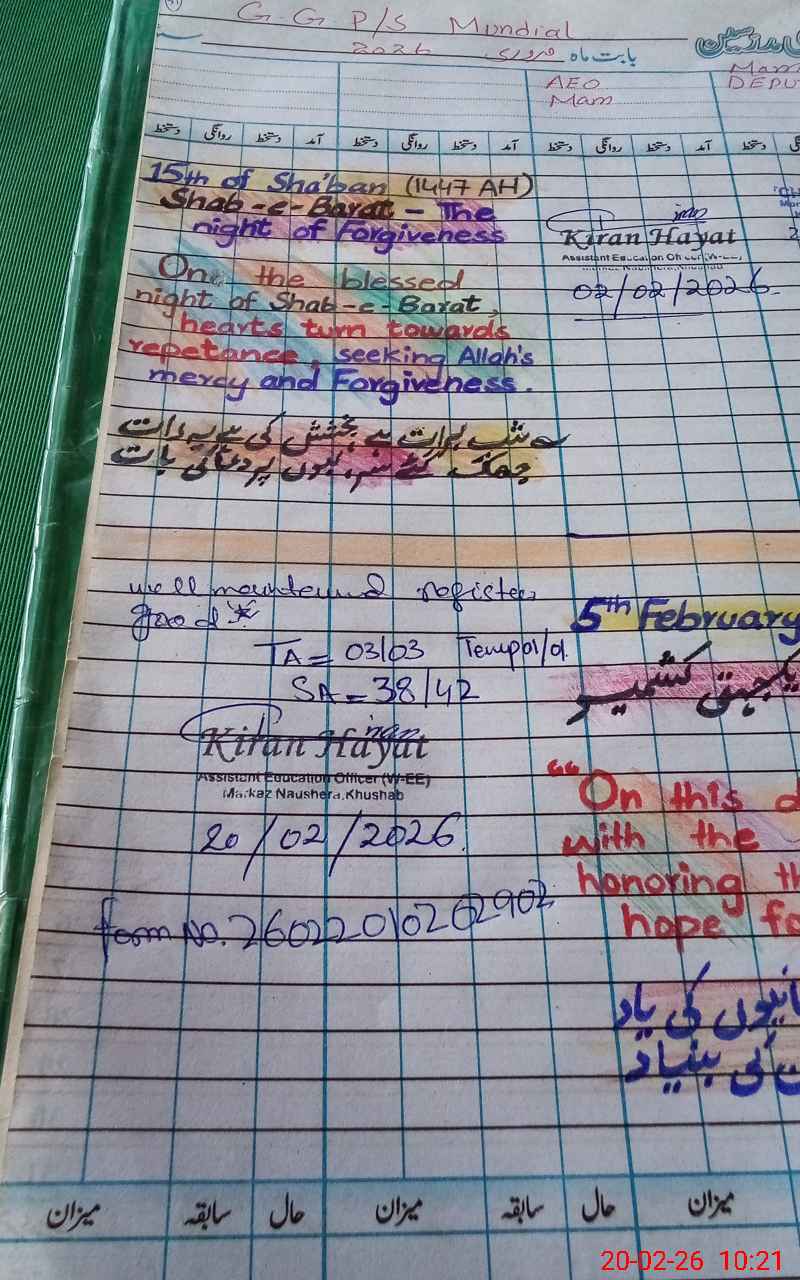 G.G P/S Mundial
بابت ماہ فروری 2026
AEO
Mam
DEPU
دستخط روانگی دستخط آمد دستخط روانگی دستخط آمد دستخط روانگی دستخط آمد دستخط
15th of Sha'ban (1447 AH)
Shab-e-Barat - The
night of Forgiveness
On the blessed
night of Shab-e-Barat,
hearts turn towards
repetance, seeking Allah's
mercy and Forgiveness.
شب برات ہے بخشش کی ہے یہ رات
جھک گئے سر، لبوں پر دعا کی بات
Kiran Hayat
Assistant Education Officer (W-EE)
02/02/2026
well mountained register
good
TA = 03/03 Tempol/d
SA = 38/42
Kiran Hayat
Assistant Education Officer (W-EE)
Markaz Naushera, Khushab
20/02/2026
form No. 26022010262902
5th February
یکجہتی کشمیر
"On this d
with the
honoring th
hope fo
کی یاد
کی بنیاد
میزان سابقہ حال میزان سابقہ حال میزان
20-02-26 10:21